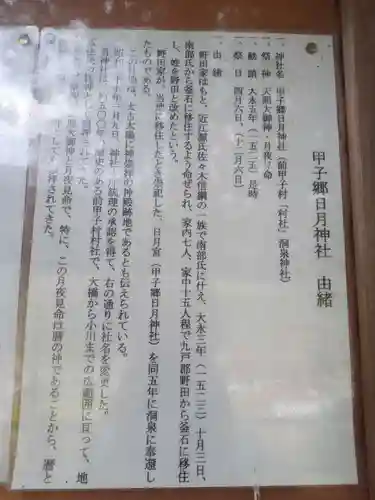 甲子郷日月神社　由緒
一、神社名　甲子郷日月神社（前甲子村「村社」洞泉神社）
一、祭神　天照大御神・月夜見命
一、勧請　大永五年（一五二五）是時
一、祭日　四月六日、（十二月六日）
一、由緒
野田家はもと、近江源氏佐々木信綱の一族で南部氏に仕え、大永三年（一五二三）十月三日、
南部氏から釜石に移住するよう命ぜられ、家内七人、家中十五人程で九戸郡野田から釜石に移住
し、姓を野田と改めたという。
野田家が、当地に移住したとき崇祀した、日月宮（甲子郷日月神社）を同五年に洞泉に奉遷し
たものである。
この は、太古太陽に神饌祥の神殿跡地であるとも伝えられている。
昭和 十年六月九日、神社 統理の承認を得て、右の通りに社名を変更した。
当神社は、約五〇〇年の歴史のある前甲子村村社で、大橋から小川までの広範囲に亘って、地
御神と月夜見命で、特に、この月夜見命は暦の神であることから、暦と
拝されてきた。